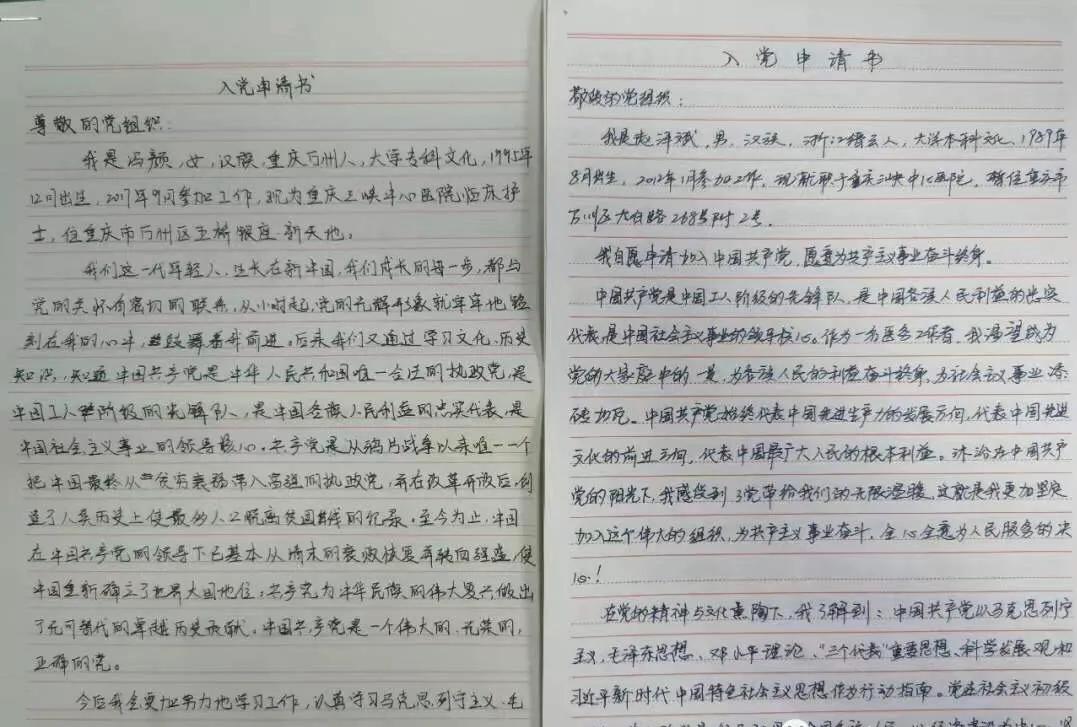 入党申请书
尊敬的党组织：
我是冯颜，女，汉族，重庆万州人，大学专科文化，1995年
12月出生，2017年9月参加工作，现为重庆三峡中心医院临床护
士，住重庆市万州区五桥银座新天地。
我们这一代年轻人，生长在新中国，我们成长的每一步，都与
党的关怀有密切的联系，从小时起，党的光辉形象就牢牢地铭
刻在我的心中，鼓舞着我前进。后来我们又通过学习文化、历史
知识，知道中国共产党是中华人民共和国唯一合法的执政党，是
中国工人阶级的先锋队，是中国各族人民利益的忠实代表，是
中国社会主义事业的领导核心。共产党是从鸦片战争以来唯一一个
把中国最终从贫穷衰弱带入富强的执政党，并在改革开放后，创
造了人类历史上使最多人口脱离贫困线的纪录。至今为止，中国
在中国共产党的领导下已基本从清末的衰败恢复并转向强盛，使
中国重新确立了世界大国地位；共产党为中华民族的伟大复兴做出
了无可替代的卓越历史贡献。中国共产党是一个伟大的、光荣的，
正确的党。
今后我会更加努力地学习工作，认真学习马克思列宁主义、毛
入党申请书
敬爱的党组织：
我是赵泽斌，男，汉族，浙江缙云人，大学本科文化，1989年
8月出生，2012年1月参加工作，现就职于重庆三峡中心医院，暂住重庆市
万州区太白路268号附2号。
我自愿申请加入中国共产党，愿意为共产主义事业奋斗终身。
中国共产党是中国工人阶级的先锋队，是中国各族人民利益的忠实
代表，是中国社会主义事业的领导核心。作为一名医务工作者，我渴望成为
党的大家庭中的一员，为各族人民的利益奋斗终身，为社会主义事业添
砖加瓦。中国共产党始终代表中国先进生产力的发展方向，代表中国先进
文化的前进方向，代表中国最广大人民的根本利益。沐浴在中国共产
党的阳光下，我感受到了党带给我们的无限温暖，这就是我更加坚定
加入这个伟大的组织，为共产主义事业奋斗，全心全意为人民服务的决
心！
在党的精神与文化熏陶下，我了解到：中国共产党以马克思列宁
主义、毛泽东思想、邓小平理论、“三个代表”重要思想、科学发展观和
习近平新时代中国特色社会主义思想作为行动指南。党在社会主义初级